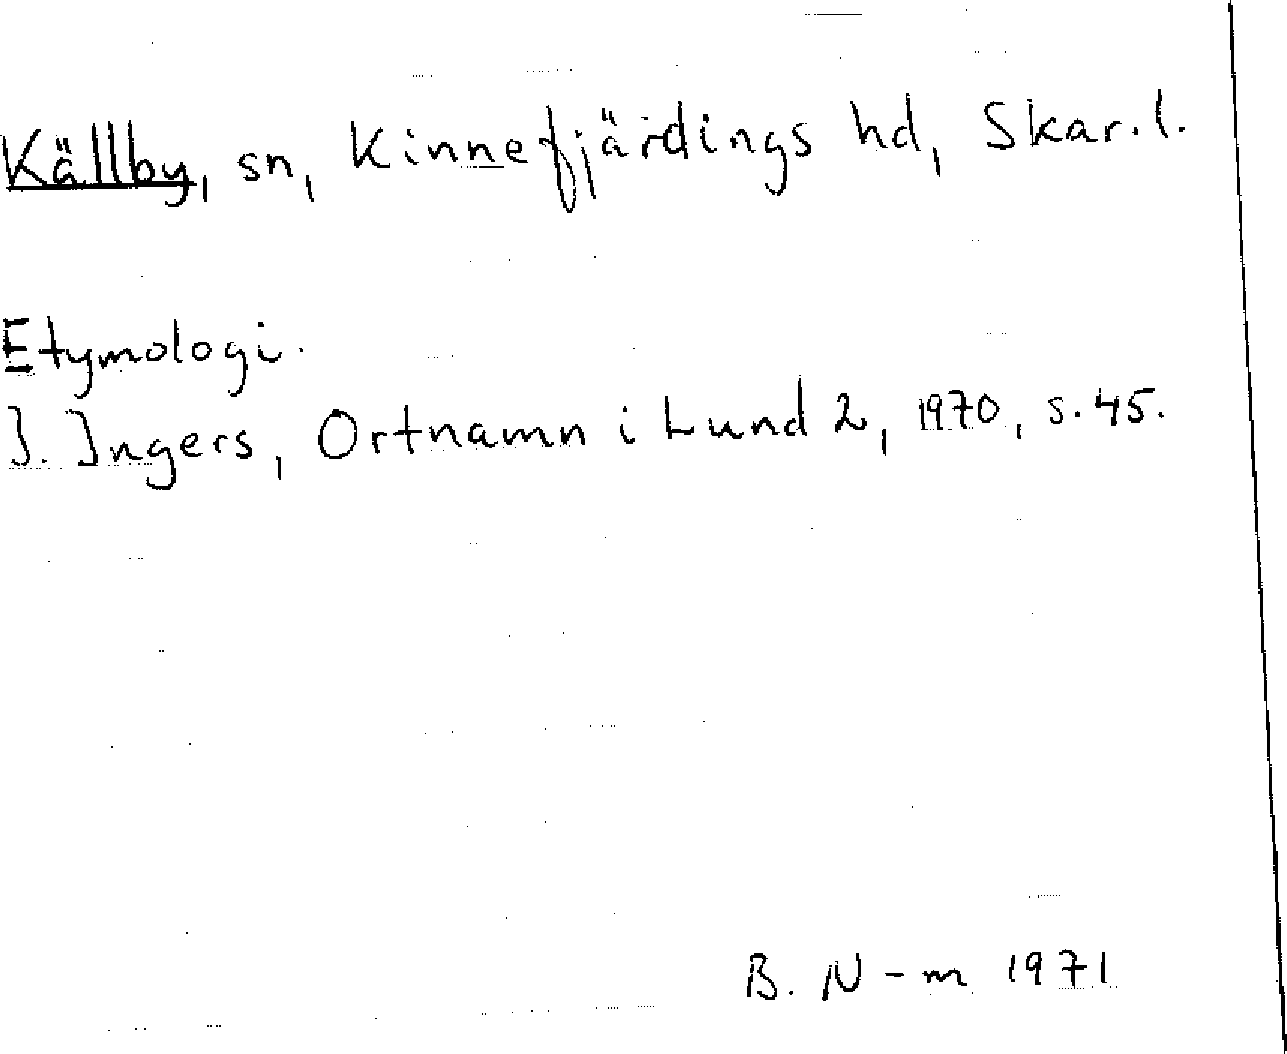 Källby, sn, Kinnefjärdings hd, Skar. l.
Etymologi.
I. Ingers, Ortnamn i Lund 2, 1970, s. 45.
B. N-m 1971